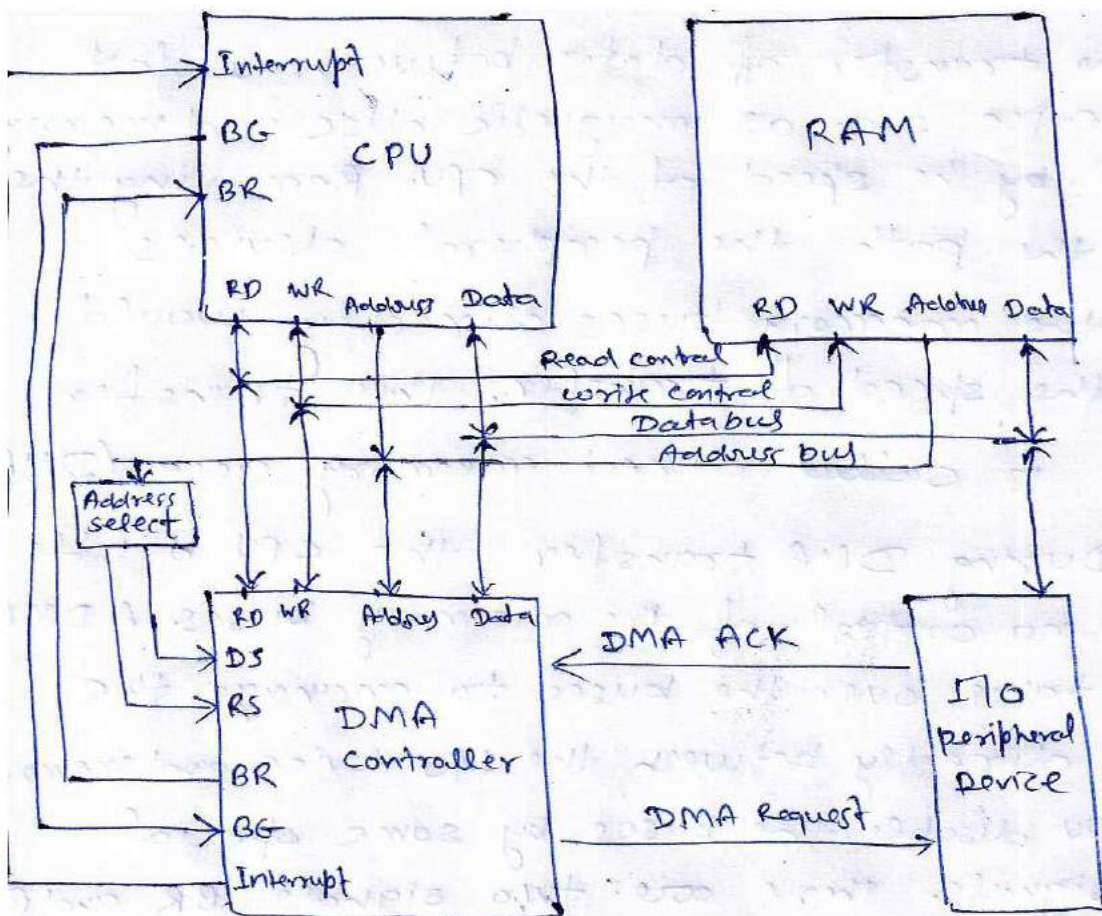 Interrupt
BG
CPU
BR
RD WR Address Data
RAM
RD WR Address Data
Read control
Write control
Data bus
Address bus
Address
select
RD WR Address Data
DS
RS
DMA
Controller
BR
BG
Interrupt
DMA ACK
DMA Request
I/O
peripheral
Device